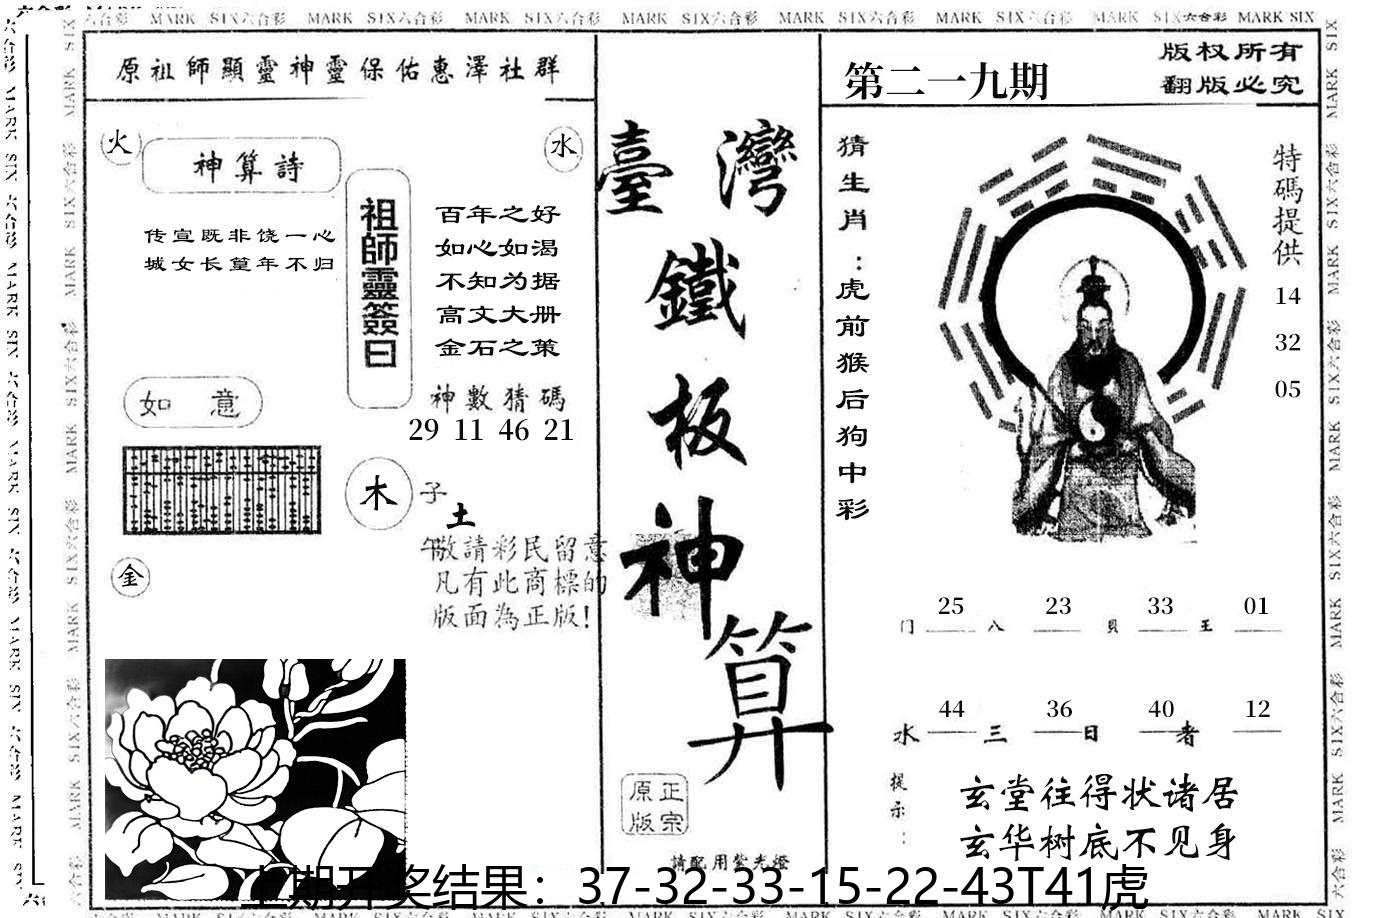 MARK SIX六合彩 MARK SIX六合彩 MARK SIX六合彩 MARK SIX六合彩 MARK SIX六合彩 MARK SIX六合彩 MARK SIX六合彩 MARK SIX
原祖師顯靈神靈保佑惠澤社群
火
水
神算詩
传宣既非饶一心
城女长篁年不归
祖師靈簽曰
百年之好
如心如渴
不知为据
高文大册
金石之策
神數猜碼
29 11 46 21
如意
木
子
土
午
金
敬請彩民留意
凡有此商標的
版面為正版!
臺灣
鐵
板
神
算
原正
版宗
請配用紫光燈
第二一九期
版权所有
翻版必究
猜生肖:虎前猴后狗中彩
特碼提供
14
32
05
25 23 33 01
门 八 貝 王
44 36 40 12
水 三 日 者
提示:
玄堂往得状诸居
玄华树底不见身
上期开奖结果：37-32-33-15-22-43T41虎